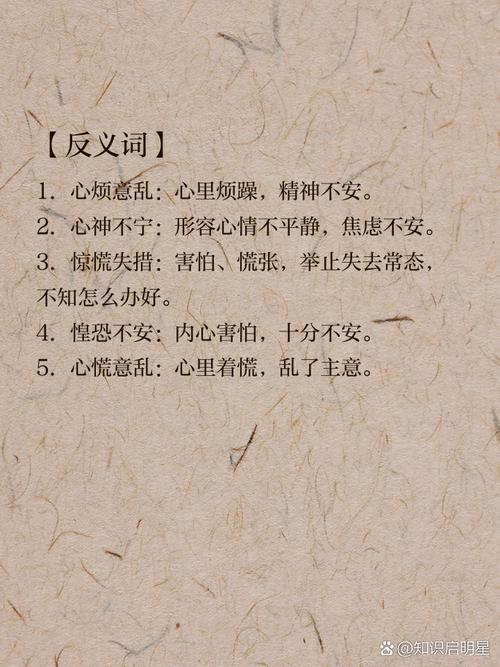 【反义词】
1. 心烦意乱：心里烦躁，精神不安。
2. 心神不宁：形容心情不平静，焦虑不安。
3. 惊慌失措：害怕、慌张，举止失去常态，
不知怎么办好。
4. 惶恐不安：内心害怕，十分不安。
5. 心慌意乱：心里着慌，乱了主意。
知识启明星